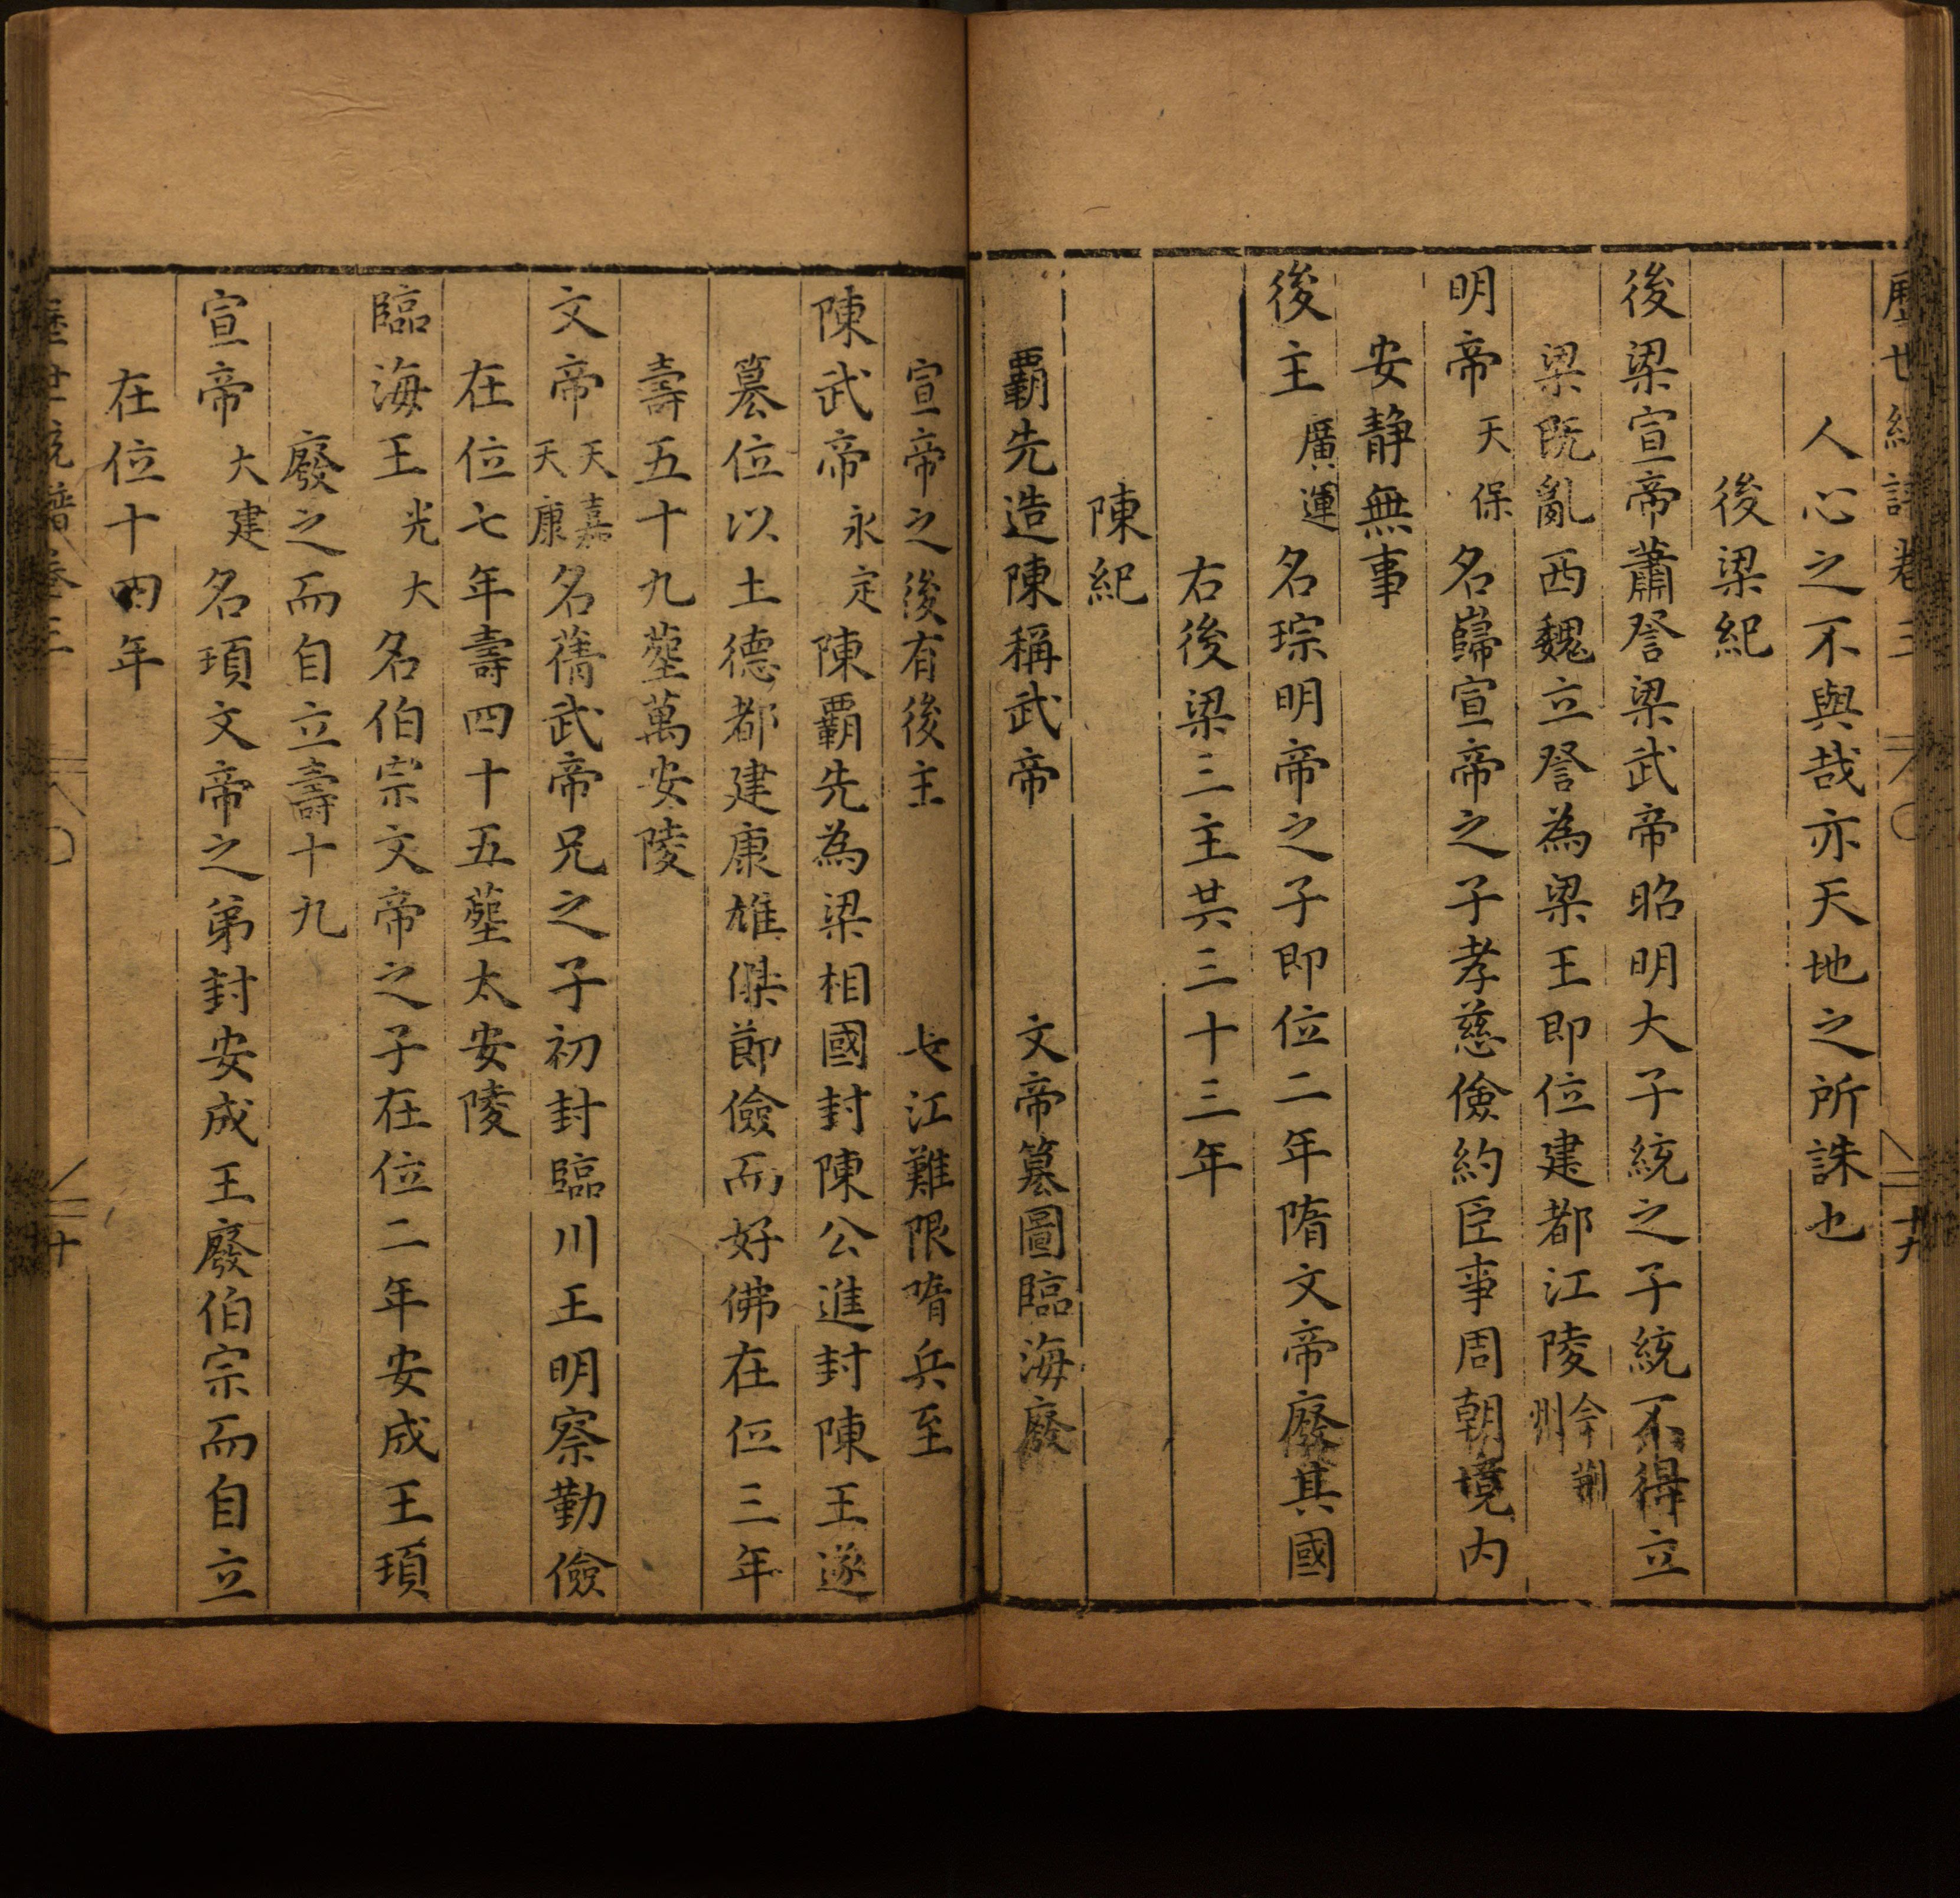 人心之不與哉亦天地之所誅也
後梁紀
後梁宣帝蕭詧梁武帝昭明大子統之子統不得立
梁既亂西魏立詧為梁王即位建都江陵今荊州
明帝天保名巋宣帝之子孝慈儉約臣事周朝境内
安静無事
後主廣運名琮明帝之子即位二年隋文帝廢其國
右後梁三主共三十三年
陳紀
霸先造陳稱武帝 文帝篡圖臨海廢
十九
宣帝之後有後主 七江難限隋兵至
陳武帝永定陳霸先為梁相國封陳公進封陳王遂
篡位以土德都建康雄傑節儉而好佛在位三年
壽五十九塟萬安陵
文帝天嘉天康名蒨武帝兄之子初封臨川王明察勤儉
在位七年壽四十五塟太安陵
臨海王光大名伯宗文帝之子在位二年安成王頊
廢之而自立壽十九
宣帝大建名頊文帝之弟封安成王廢伯宗而自立
在位十四年
歷世統譜卷三